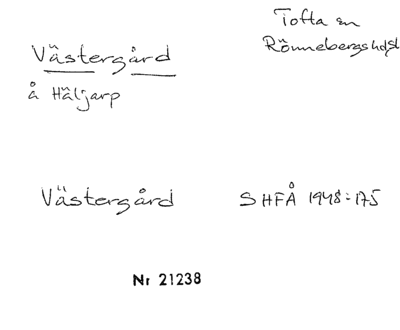 Tofta sn
Rönnebergs hd
Västergård
å Häljarp
Västergård SHFÅ 1948:175
Nr 21238